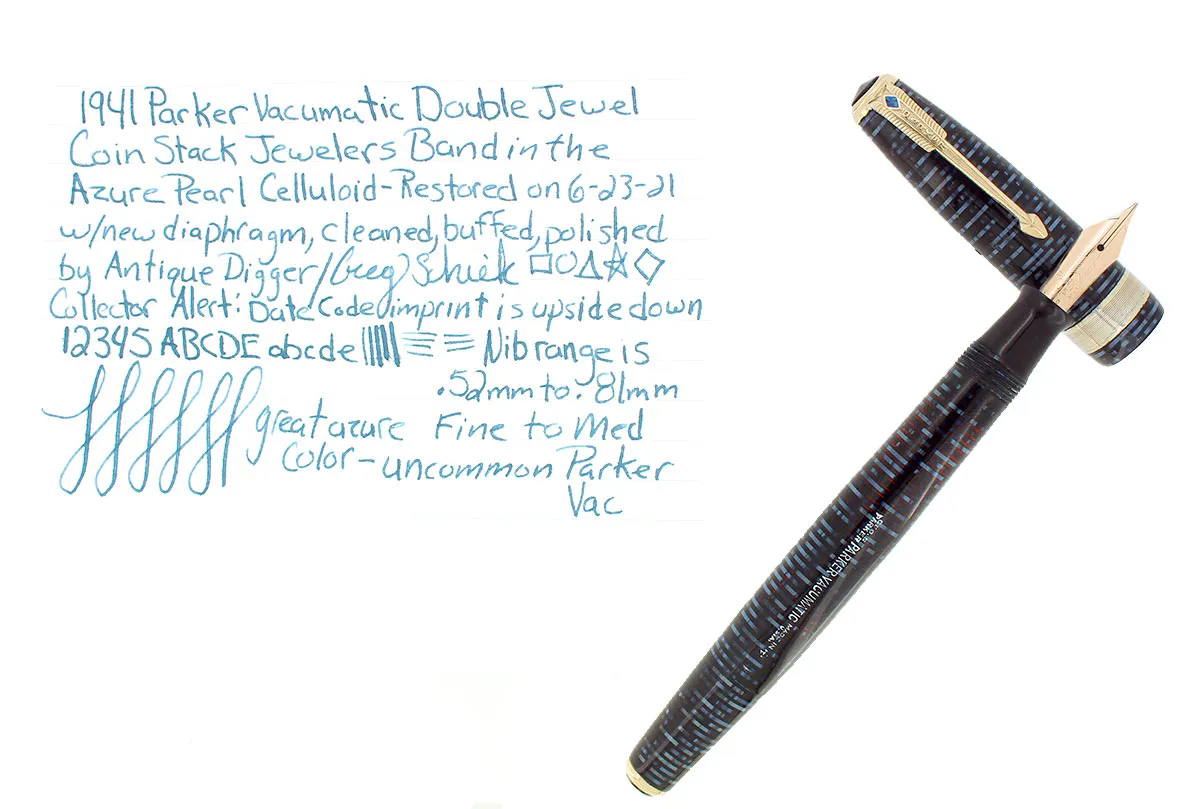 1941 Parker Vacumatic Double Jewel
Coin Stack Jewelers Band in the
Azure Pearl Celluloid-Restored on 6-23-21
w/new diaphragm, cleaned, buffed, polished
by Antique Digger/Greg Schiek
Collector Alert: Date Code imprint is upside down
12345 ABCDE abcde Nib range is
.52mm to .81mm
great azure Fine to Med
color-uncommon Parker
Vac
PARKER
PARKER VACUMATIC
MADE IN
U.S.A.